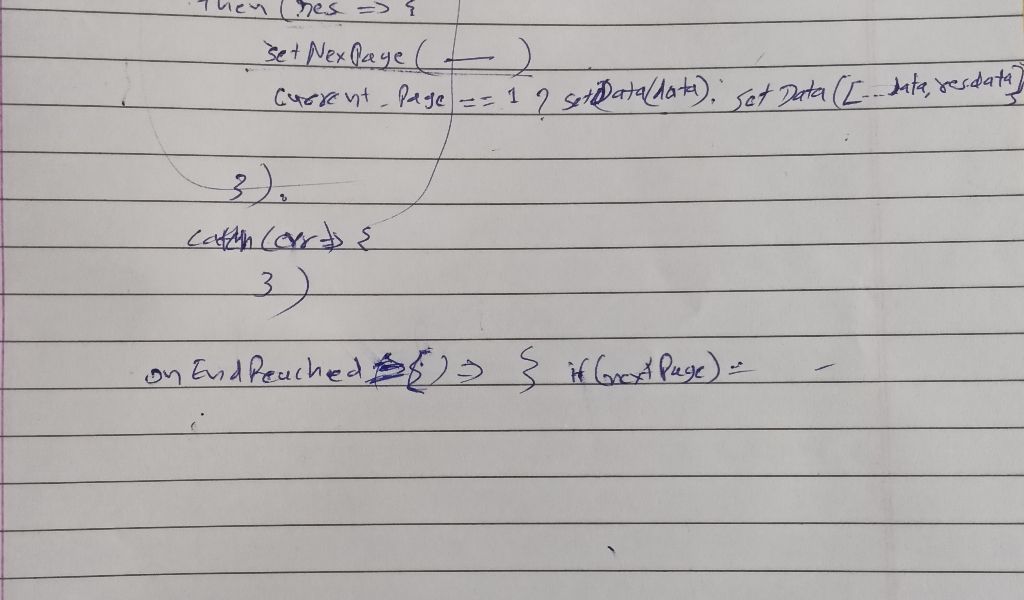 then (res => {
setNexPage ( — )
current_Page == 1 ? setData(data): setData([...data, res.data]
}).
catch (err => {
})
onEndReached = () => { if (nextPage) = -